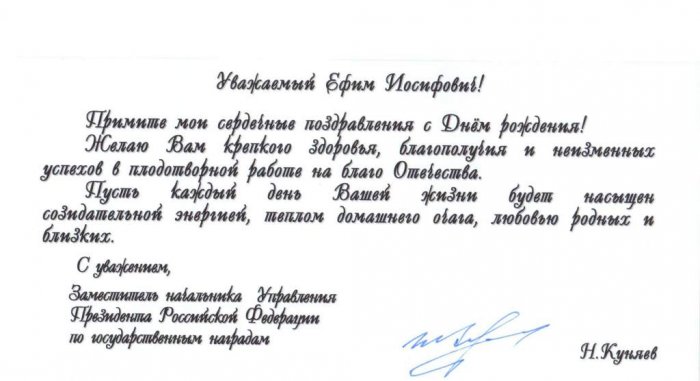 Уважаемый Ефим Иосифович!
Примите мои сердечные поздравления с Днём рождения!
Желаю Вам крепкого здоровья, благополучия и неизменных
успехов в плодотворной работе на благо Отечества.
Пусть каждый день Вашей жизни будет насыщен
созидательной энергией, теплом домашнего очага, любовью родных и
близких.
С уважением,
Заместитель начальника Управления
Президента Российской Федерации
по государственным наградам
Н.Куняев